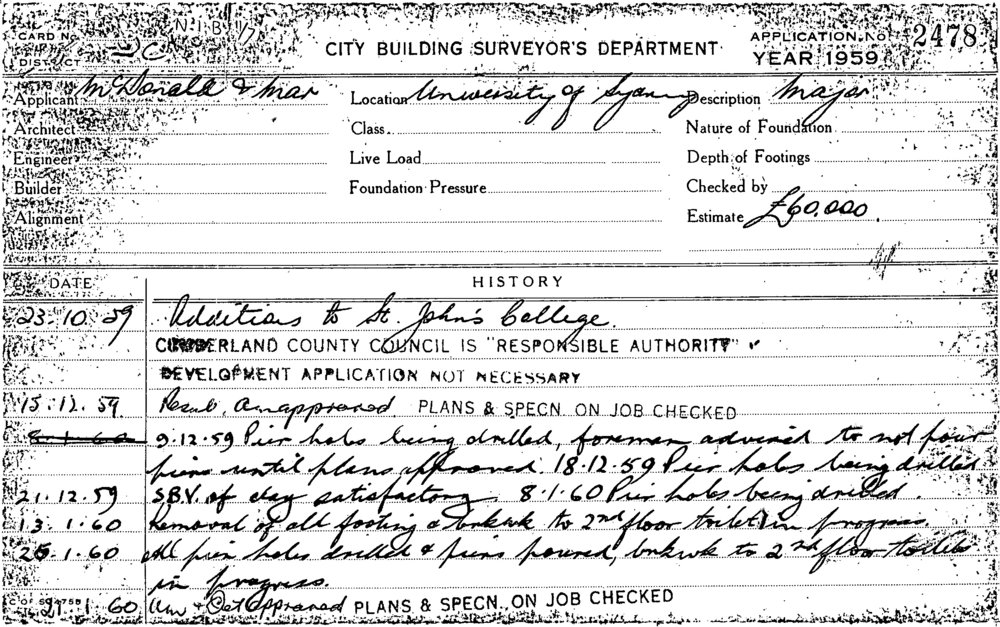 CARD No. N.I.B. 17
CITY BUILDING SURVEYOR'S DEPARTMENT
APPLICATION No. 2478
DISTRICT
YEAR 1959
Applicant McDonald & Mar Location University of Sydney Description Major
Architect Class. Nature of Foundation
Engineer Live Load Depth of Footings
Builder Foundation Pressure Checked by
Alignment Estimate £60,000.
DATE HISTORY
23.10.59 Additions to St. John's College.
CUMBERLAND COUNTY COUNCIL IS "RESPONSIBLE AUTHORITY"
DEVELOPMENT APPLICATION NOT NECESSARY
15.12.59 approved PLANS & SPECN. ON JOB CHECKED
8.1.60 9.12.59 Pier holes being drilled, foreman advised to not pour
piers until plans approved. 18.12.59 Pier holes being drilled
21.12.59 S.B.V. of clay satisfactory 8.1.60 Pier holes being drilled.
13.1.60 Removal of old footing & brkwk to 2nd floor toilet in progress.
25.1.60 All pier holes drilled & piers poured, brkwk to 2nd floor toilets
in progress.
29.1.60 approved PLANS & SPECN. ON JOB CHECKED